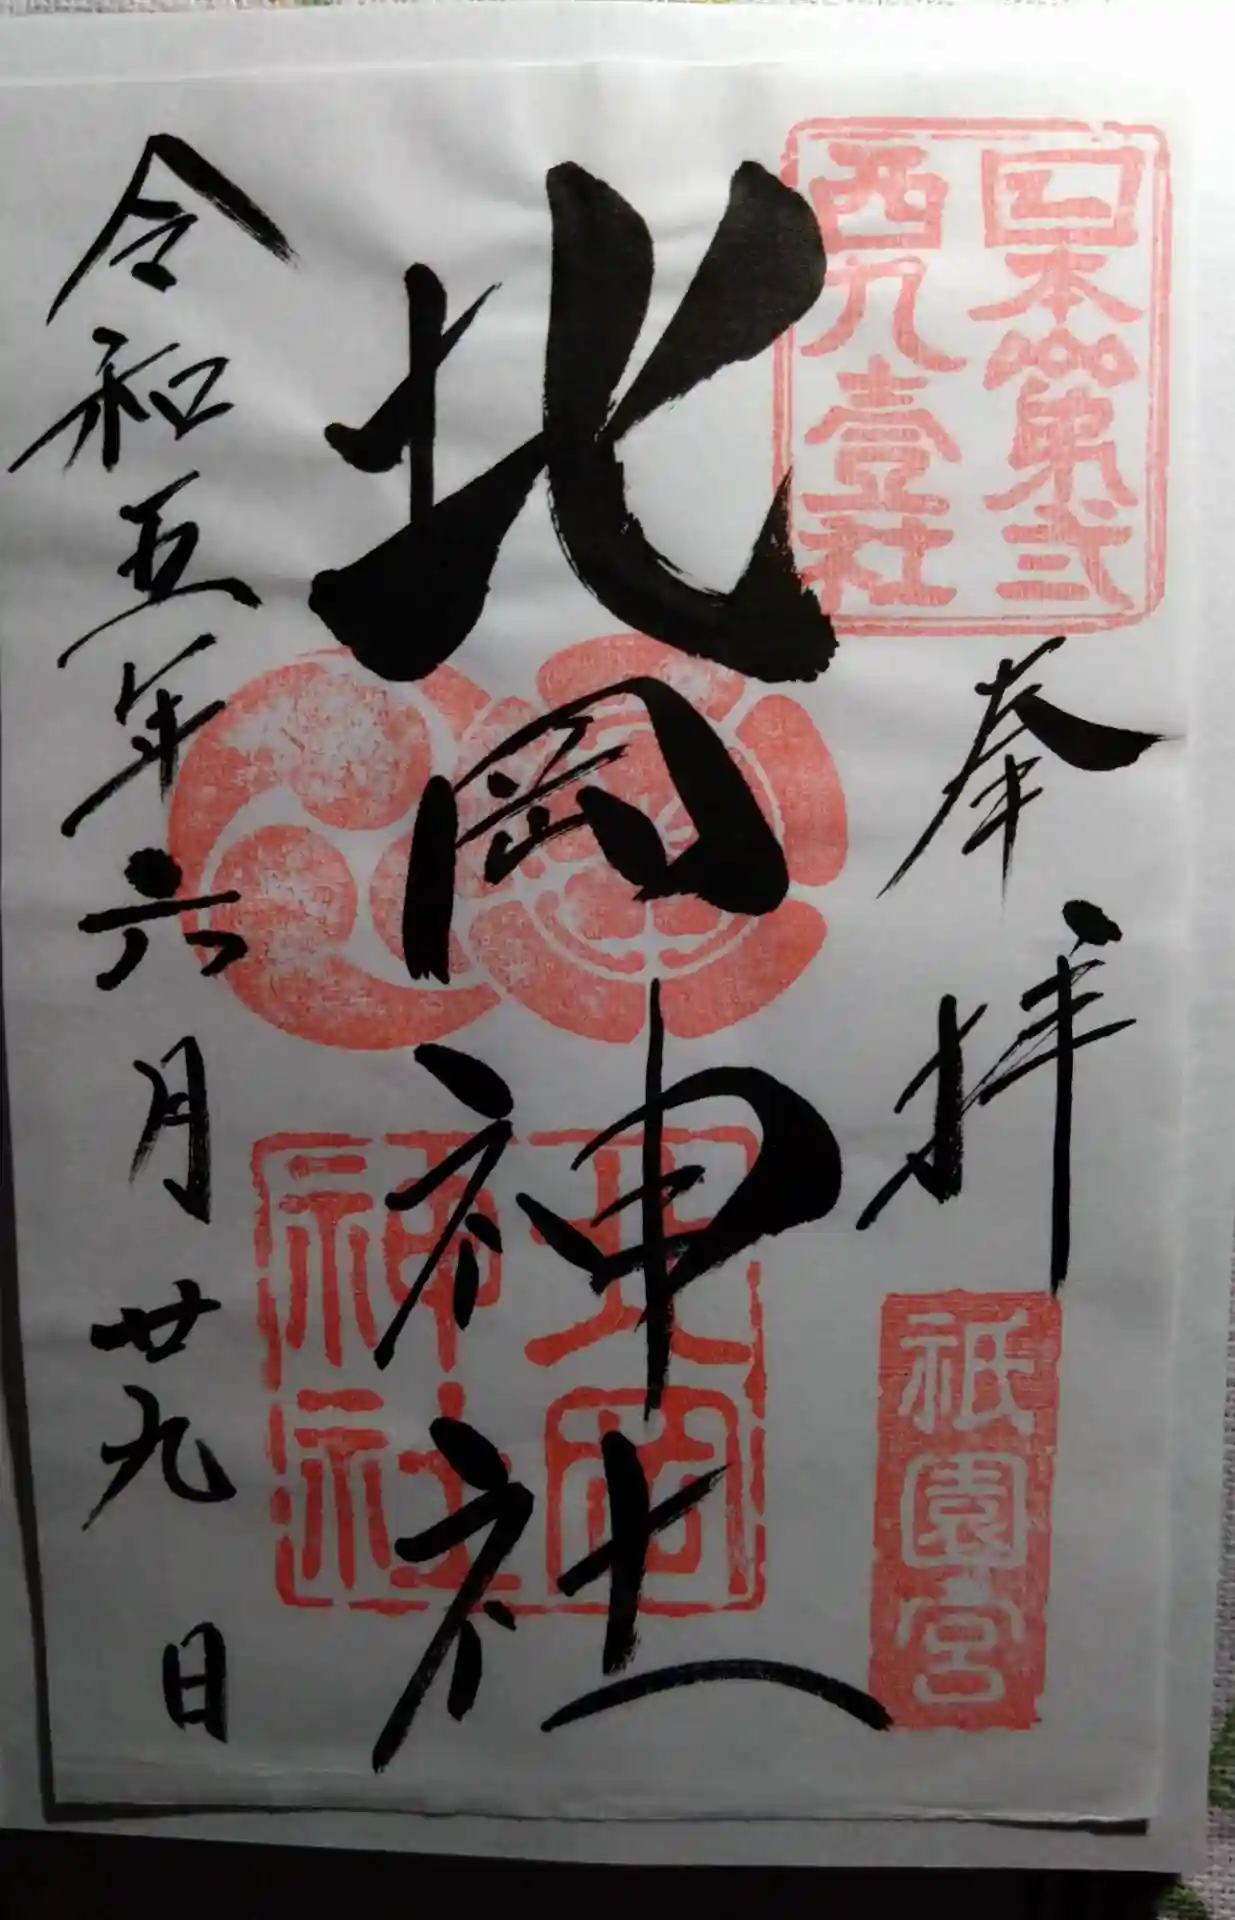 日本第弐
西九壹社
奉拝
祇園宮
北岡神社
北岡
神社
令和五年六月廿九日